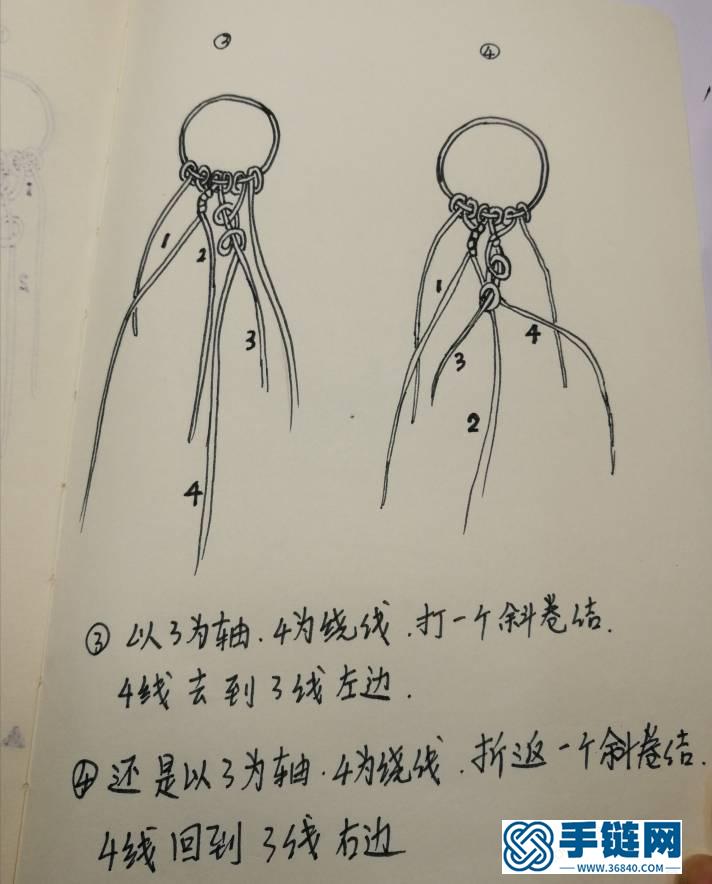 ③
④
1
2
3
4
1
3
4
2
③ 以3为轴.4为绕线.打一个斜卷结.
4线去到3线左边.
④ 还是以3为轴.4为绕线.折返一个斜卷结.
4线回到3线右边
手链网
WWW.36840.COM